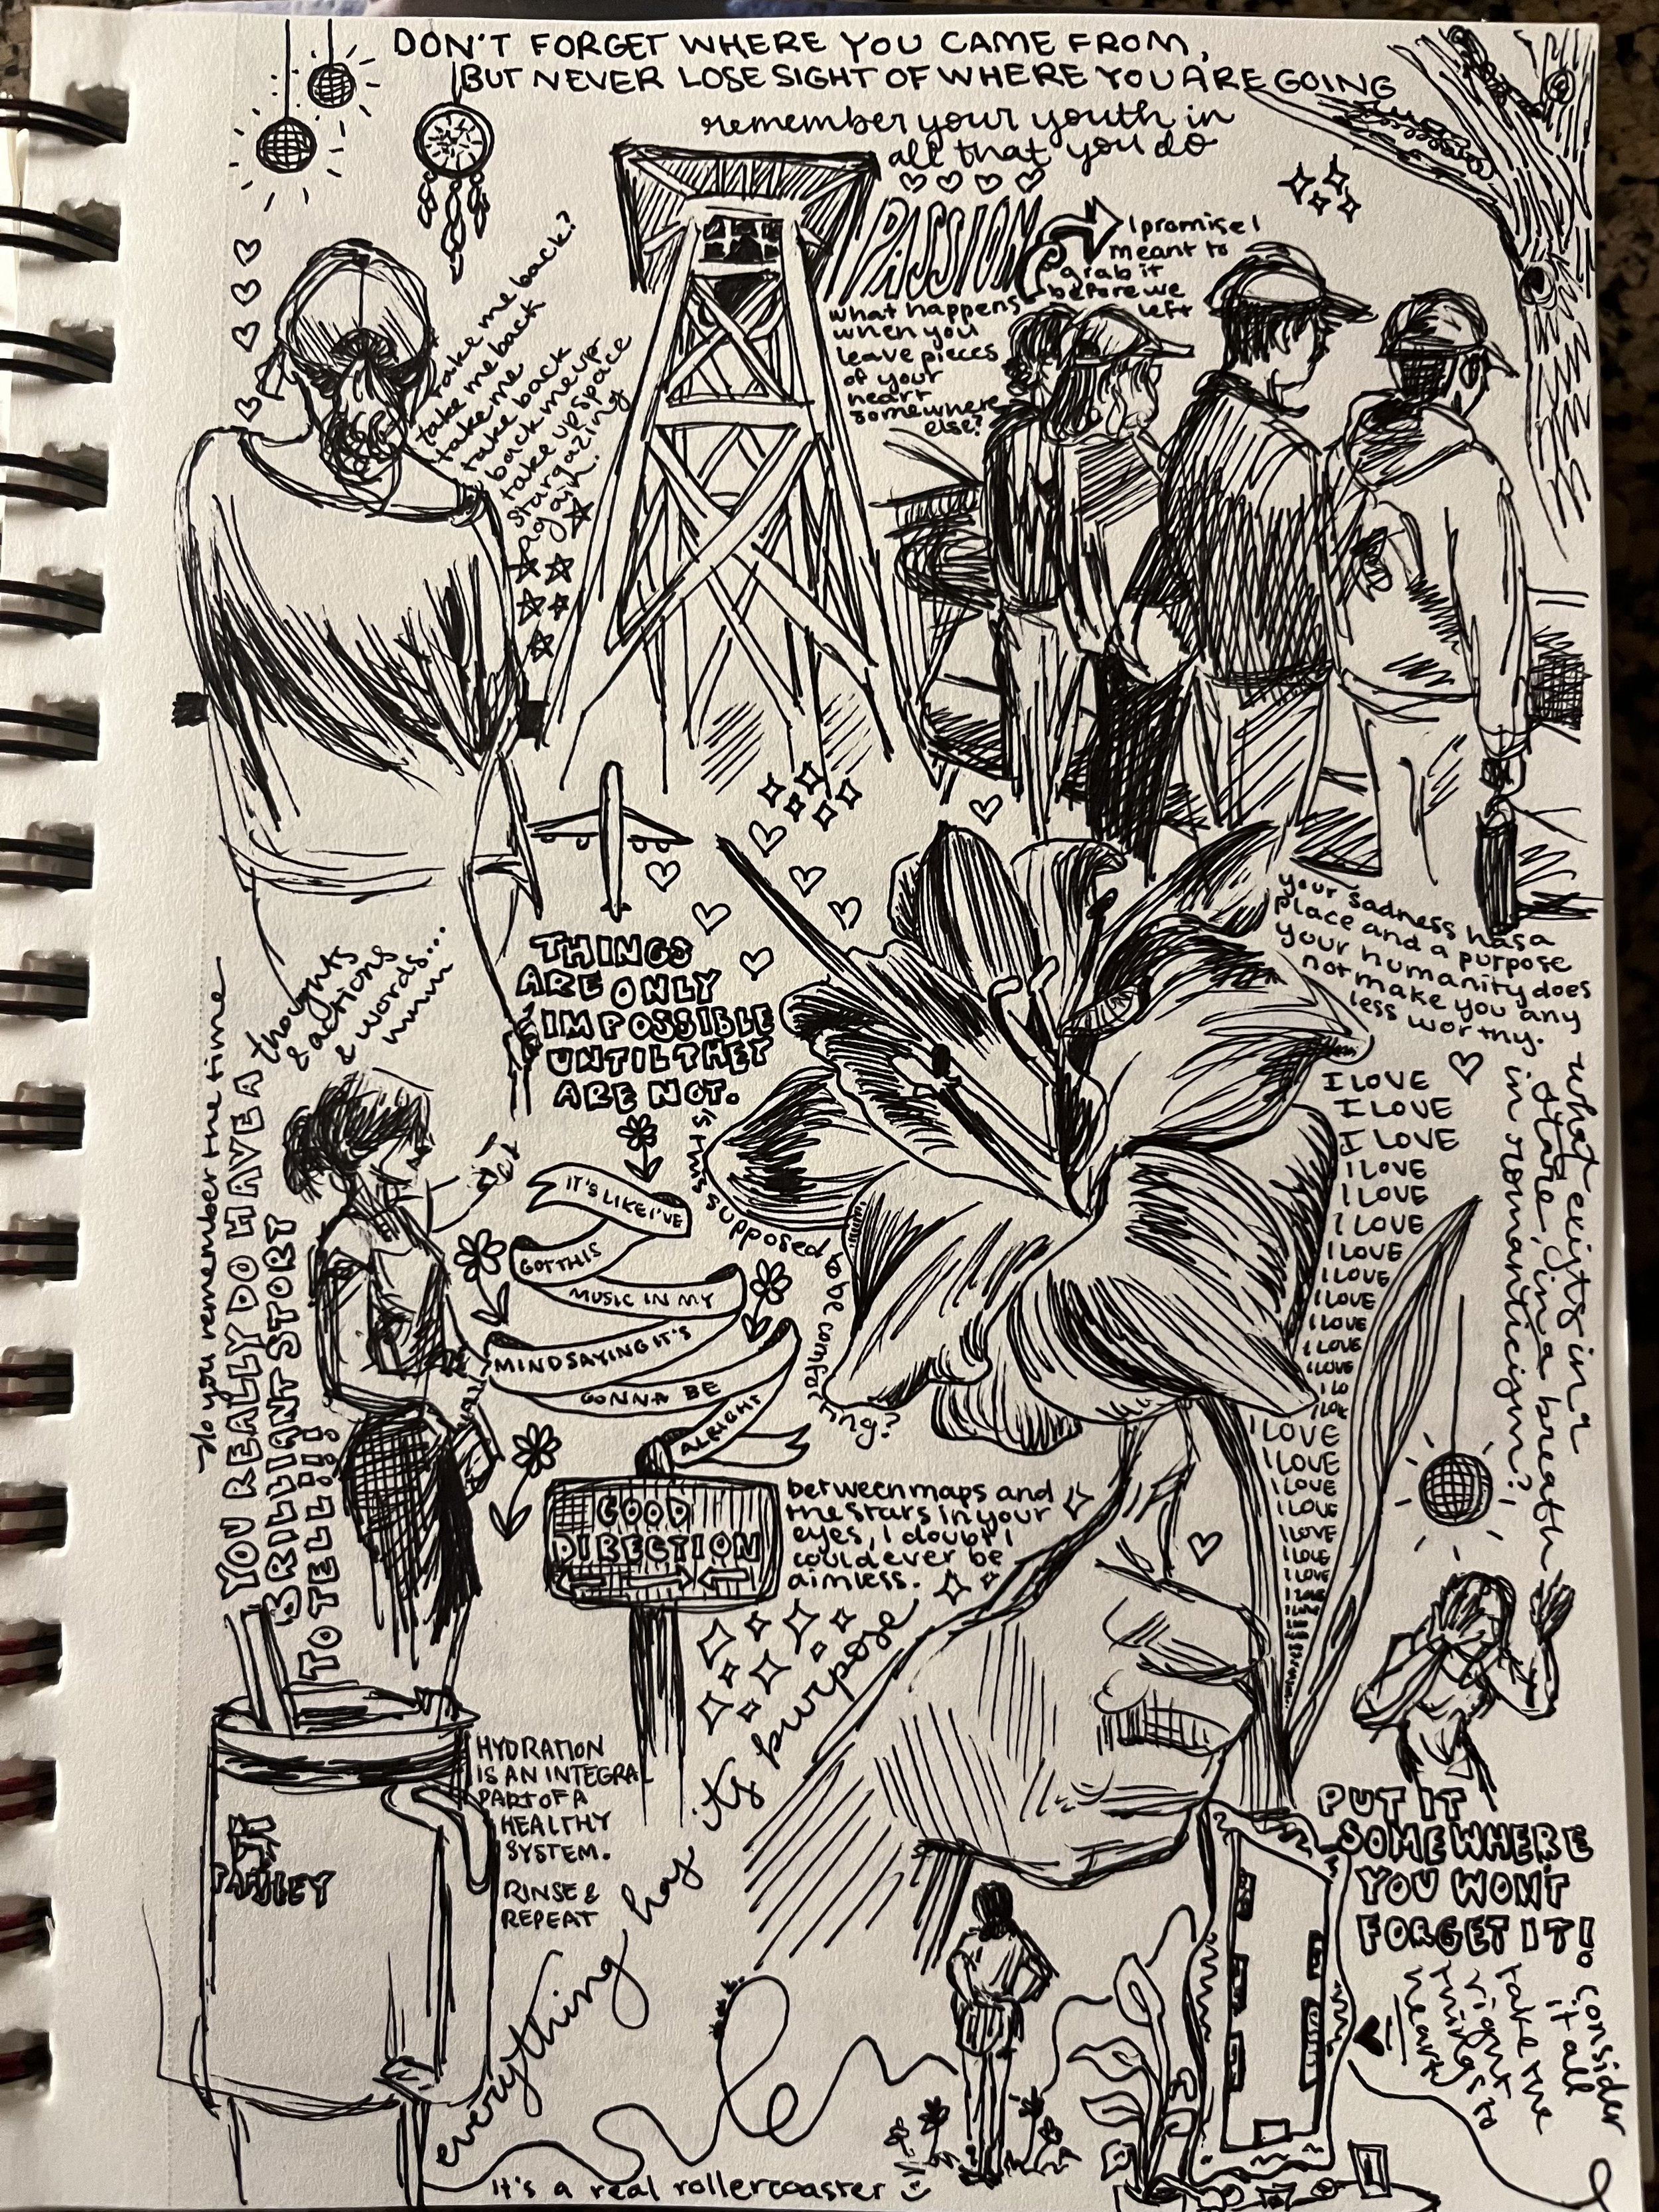 DON'T FORGET WHERE YOU CAME FROM,
BUT NEVER LOSE SIGHT OF WHERE YOU ARE GOING
remember your youth in
all that you do
PASSION
I promise I
meant to
grab it
before we
left
what happens
when you
leave pieces
of your
heart
somewhere
else?
take me back?
take me back
take me
take back
back me up
take up space
stargazing
again.
your sadness has a
place and a purpose
your humanity does
not make you any
less worthy.
THINGS
ARE ONLY
IMPOSSIBLE
UNTIL THEY
ARE NOT.
thoughts
& actions
& words...
do you remember the time
YOU REALLY DO HAVE A
BRILLIANT STORY
TO TELL!!!
is this supposed to be comforting?
IT'S LIKE I'VE
GOT THIS
MUSIC IN MY
MIND SAYING IT'S
GONNA BE
ALRIGHT
I LOVE
I LOVE
I LOVE
I LOVE
I LOVE
I LOVE
I LOVE
I LOVE
I LOVE
I LOVE
I LOVE
I LOVE
I LO
I LOVE
I LOVE
I LOVE
I LOVE
I LOVE
I LOVE
I LOVE
I LOVE
what exists in a
stare, in a breath
in romanticism?
GOOD
DIRECTION
between maps and
the stars in your
eyes, I doubt I
could ever be
aimless.
everything has its purpose
HYDRATION
IS AN INTEGRAL
PART OF A
HEALTHY
SYSTEM.
RINSE &
REPEAT
PUT IT
SOMEWHERE
YOU WON'T
FORGET IT!
consider
it all
take the
right
things to
heart
it's a real rollercoaster